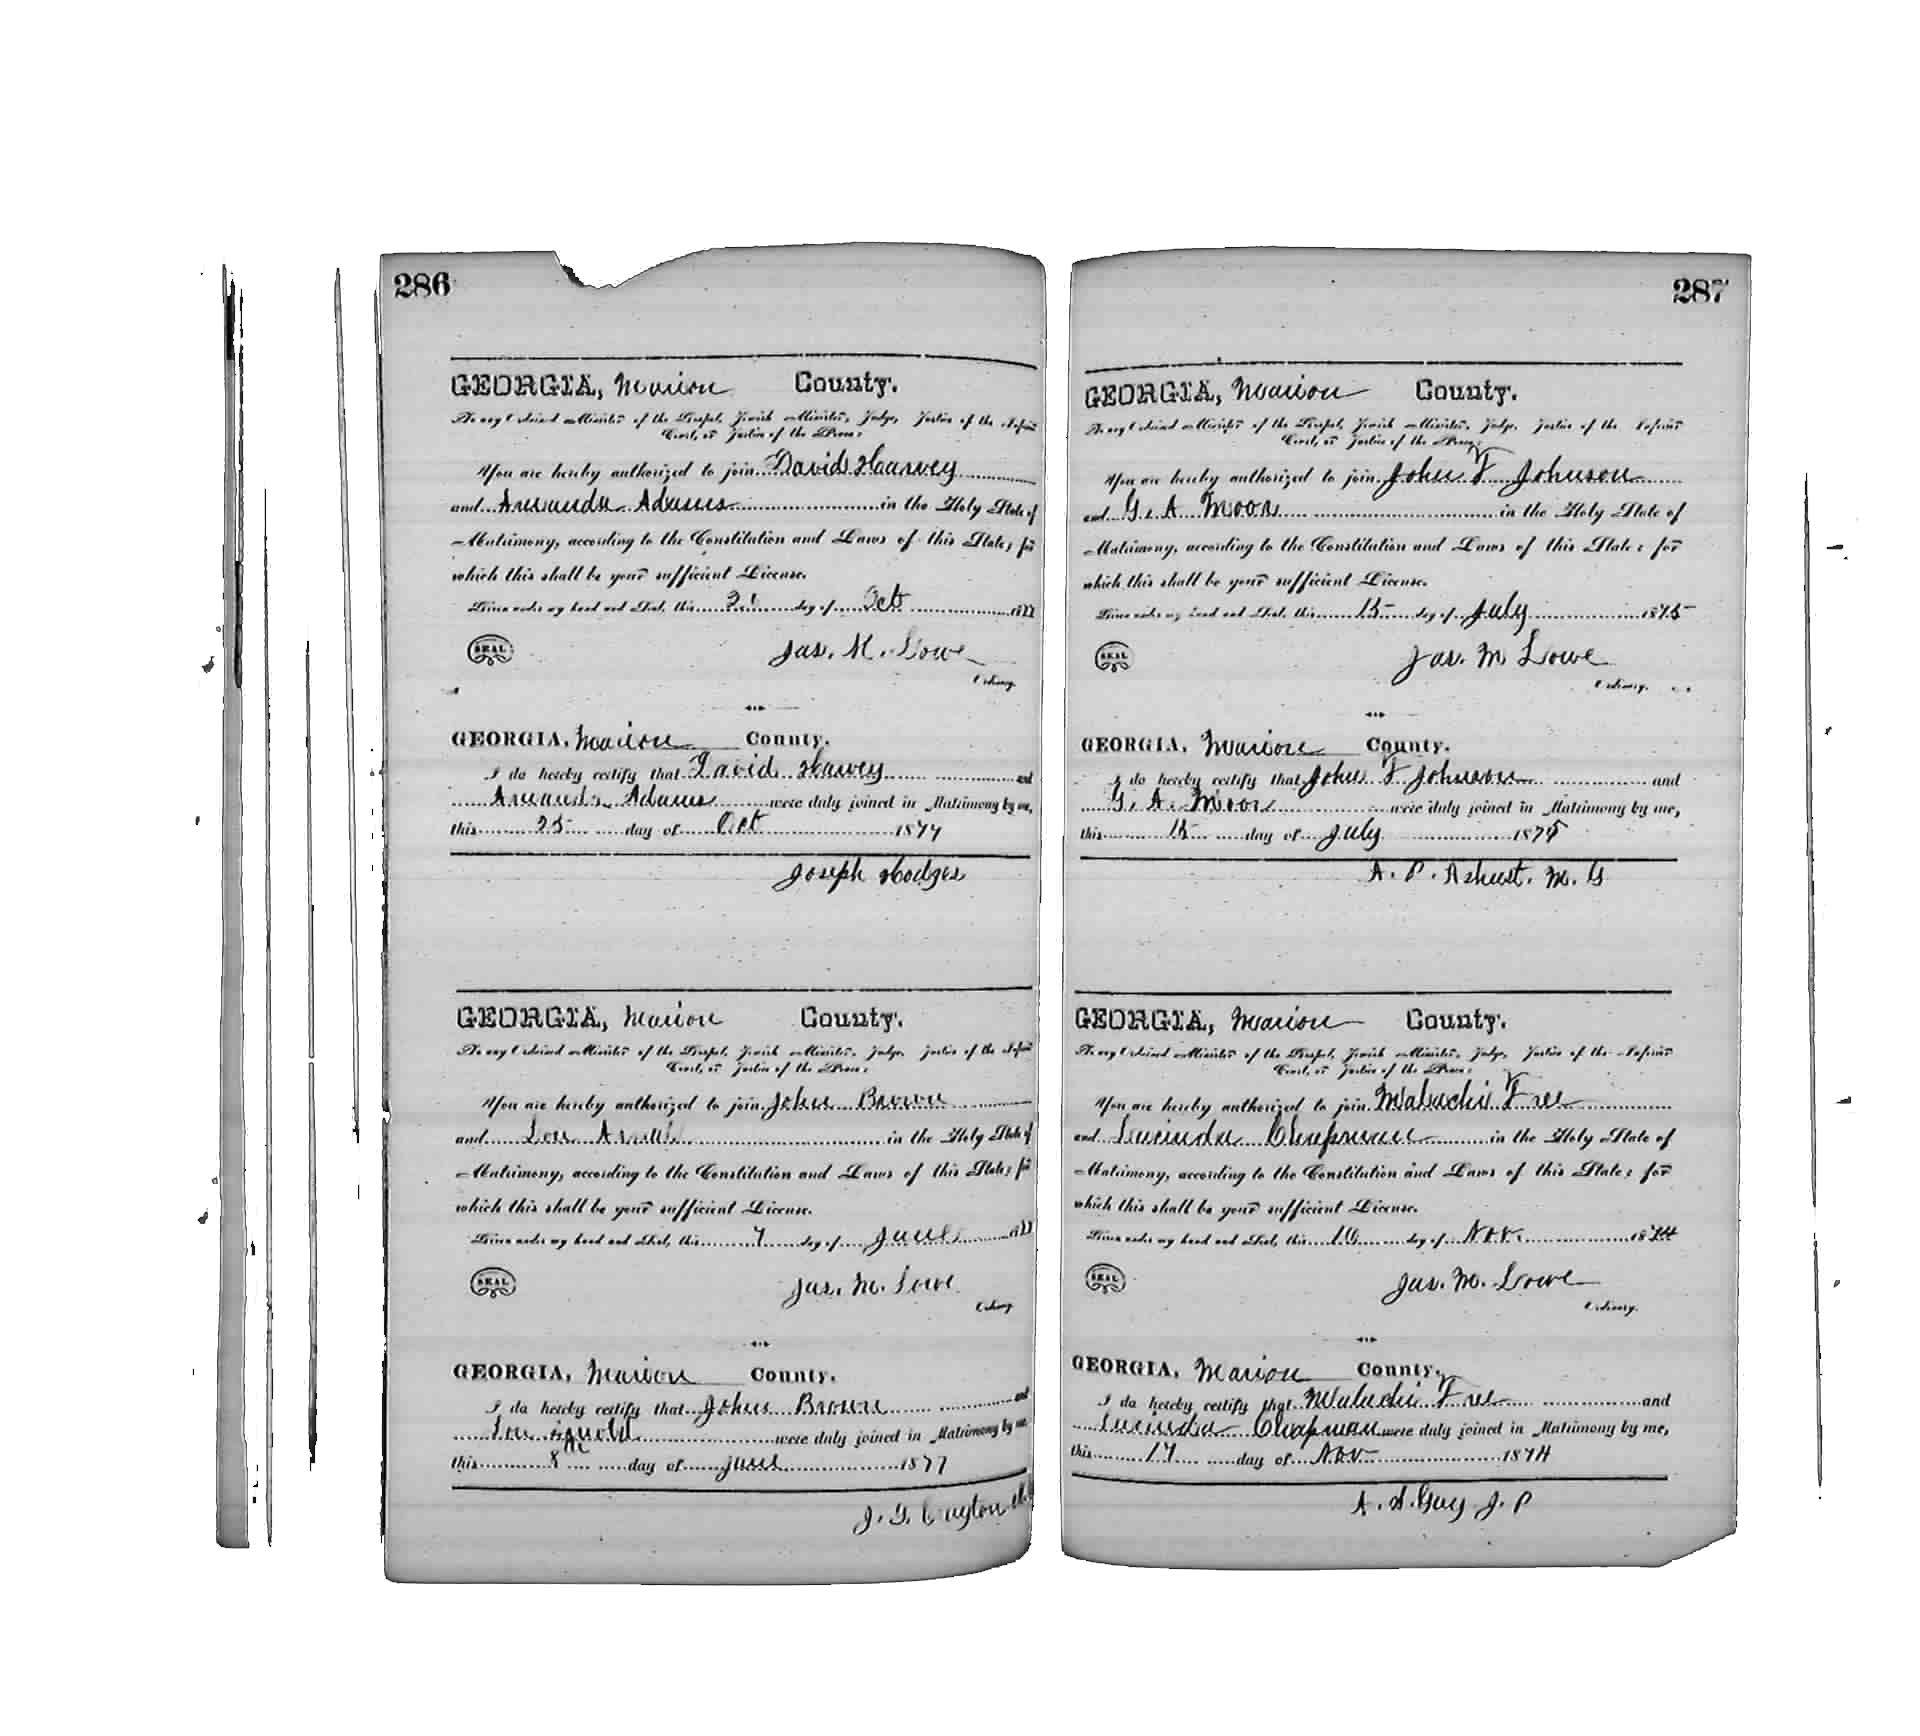 286
GEORGIA, Marion County.
To any Ordained Minister of the Gospel, Jewish Minister, Judge, Justice of the Inferior
Court, or Justice of the Peace:
You are hereby authorized to join David Harvey
and Amanda Adams in the Holy State of
Matrimony, according to the Constitution and Laws of this State; for
which this shall be your sufficient License.
Given under my hand and Seal, this day of Oct 1877
SEAL
Jas. M. Lowe
Ordinary.
GEORGIA, Marion County.
I do hereby certify that David Harvey and
Amanda Adams were duly joined in Matrimony by me,
this 25 day of Oct 1877
Joseph Hodges
GEORGIA, Marion County.
To any Ordained Minister of the Gospel, Jewish Minister, Judge, Justice of the Inferior
Court, or Justice of the Peace:
You are hereby authorized to join John Brown
and Lou Arnold in the Holy State of
Matrimony, according to the Constitution and Laws of this State; for
which this shall be your sufficient License.
Given under my hand and Seal, this 7 day of June 1877
SEAL
Jas. M. Lowe
Ordinary
GEORGIA, Marion County.
I do hereby certify that John Brown and
Lou Arnold were duly joined in Matrimony by me,
this 8th day of June 1877
J. G. Crayton
287
GEORGIA, Marion County.
To any Ordained Minister of the Gospel, Jewish Minister, Judge, Justice of the Inferior
Court, or Justice of the Peace:
You are hereby authorized to join John F Johnson
and G. A Moore in the Holy State of
Matrimony, according to the Constitution and Laws of this State; for
which this shall be your sufficient License.
Given under my hand and Seal, this 15 day of July 1875
SEAL
Jas. M Lowe
Ordinary.
GEORGIA, Marion County.
I do hereby certify that John F Johnson and
G. A. Moore were duly joined in Matrimony by me,
this 15 day of July 1875
A. P. Ashurst. M. G
GEORGIA, Marion County.
To any Ordained Minister of the Gospel, Jewish Minister, Judge, Justice of the Inferior
Court, or Justice of the Peace:
You are hereby authorized to join Maluchi Free
and Lucinda Chapman in the Holy State of
Matrimony, according to the Constitution and Laws of this State; for
which this shall be your sufficient License.
Given under my hand and Seal, this 16 day of Nov. 1874
SEAL
Jas. M. Lowe
Ordinary.
GEORGIA, Marion County.
I do hereby certify that Maluchi Free and
Lucinda Chapman were duly joined in Matrimony by me,
this 17 day of Nov 1874
A. S. Guy J. P